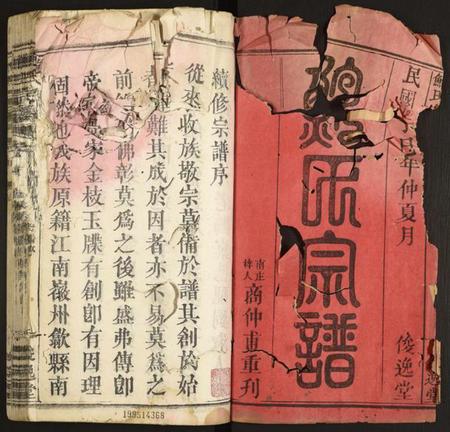 民國丁巳年仲夏月
俊逸堂
鮑氏宗譜
南庄
梓人
商仲甫重刊
續修宗譜序
從來收族敬宗莫備於譜其創於始
難其成於因者亦不易莫為之
前弗彰莫為之後雖盛弗傳即
帝家金枝玉牒有創即有因理
固然也我族原籍江南徽州歙縣南
199514368